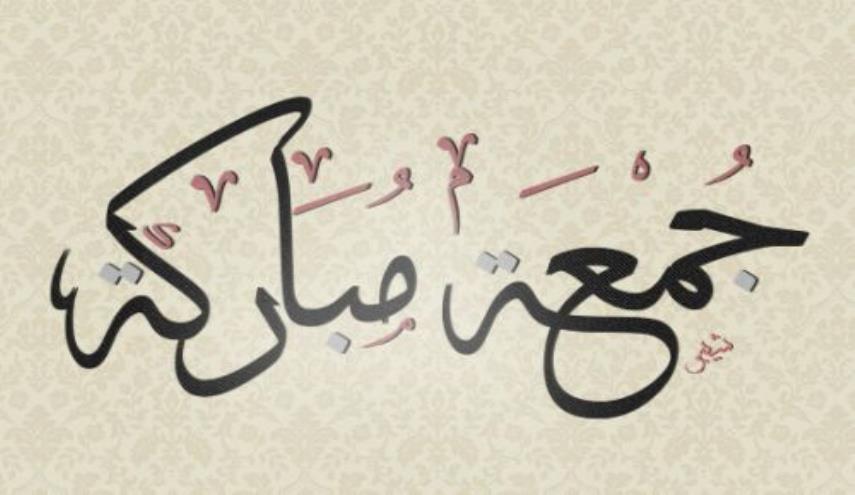 جُمْعَة مُبَاركة